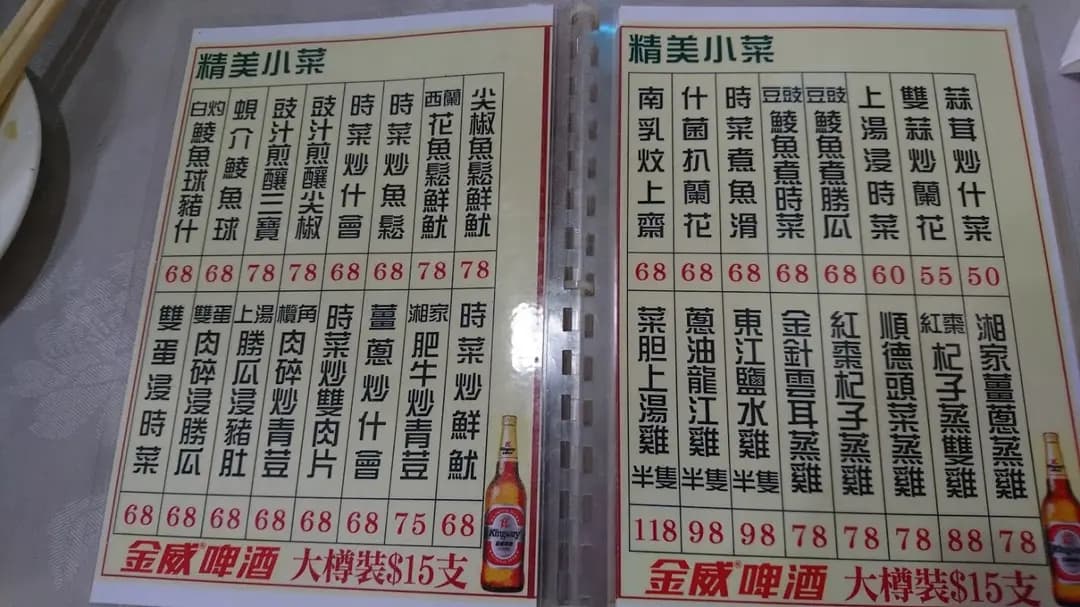 精美小菜
尖椒魚鬆鮮魷
78
西蘭花魚鬆鮮魷
78
時菜炒魚鬆
68
時菜炒什會
68
豉汁煎釀尖椒
78
豉汁煎釀三寶
78
蜆介鯪魚球
68
白灼鯪魚球豬什
68
時菜炒鮮魷
68
湘家肥牛炒青荳
75
薑蔥炒什會
68
時菜炒雙肉片
68
欖角肉碎炒青荳
68
上湯勝瓜浸豬肚
68
雙蛋肉碎浸勝瓜
68
雙蛋浸時菜
68
金威®啤酒 大樽裝$15支
Kingway
精美小菜
蒜茸炒什菜
50
雙蒜炒蘭花
55
上湯浸時菜
60
豆豉鯪魚煮勝瓜
68
豆豉鯪魚煮時菜
68
時菜煮魚滑
68
什菌扒蘭花
68
南乳炆上齋
68
湘家薑蔥蒸雞
78
紅棗杞子蒸雙雞
88
順德頭菜蒸雞
78
紅棗杞子蒸雞
78
金針雲耳蒸雞
78
東江鹽水雞半隻
98
蔥油龍江雞半隻
98
菜胆上湯雞半隻
118
金威®啤酒 大樽裝$15支